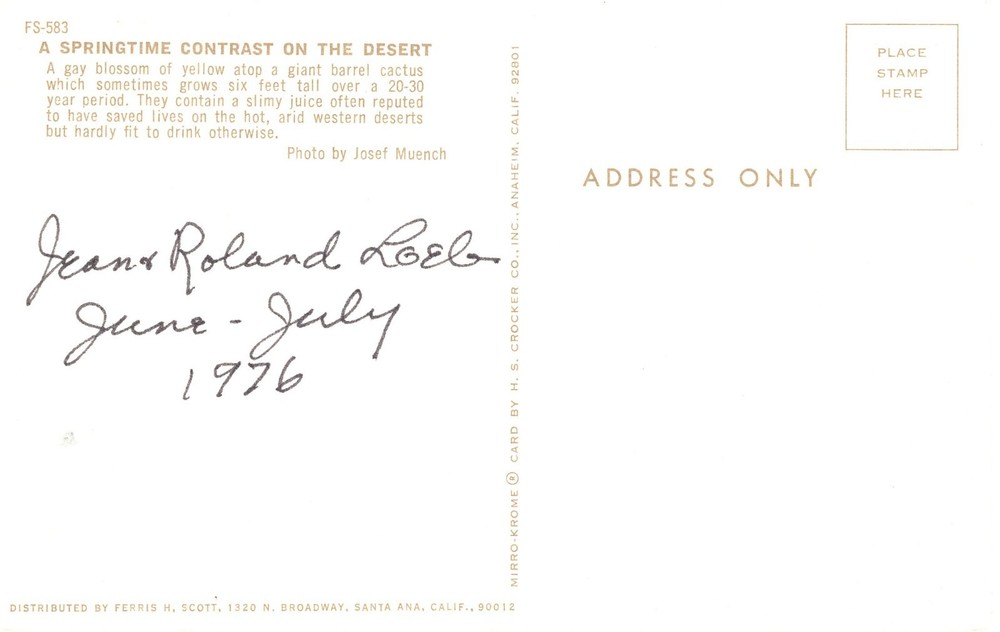 FS-583
A SPRINGTIME CONTRAST ON THE DESERT
A gay blossom of yellow atop a giant barrel cactus
which sometimes grows six feet tall over a 20-30
year period. They contain a slimy juice often reputed
to have saved lives on the hot, arid western deserts
but hardly fit to drink otherwise.
Photo by Josef Muench
Jean & Roland Loeb
June - July
1976
DISTRIBUTED BY FERRIS H. SCOTT, 1320 N. BROADWAY, SANTA ANA, CALIF., 90012
MIRRO-KROME® CARD BY H. S. CROCKER CO., INC., ANAHEIM, CALIF. 92801
PLACE
STAMP
HERE
ADDRESS ONLY